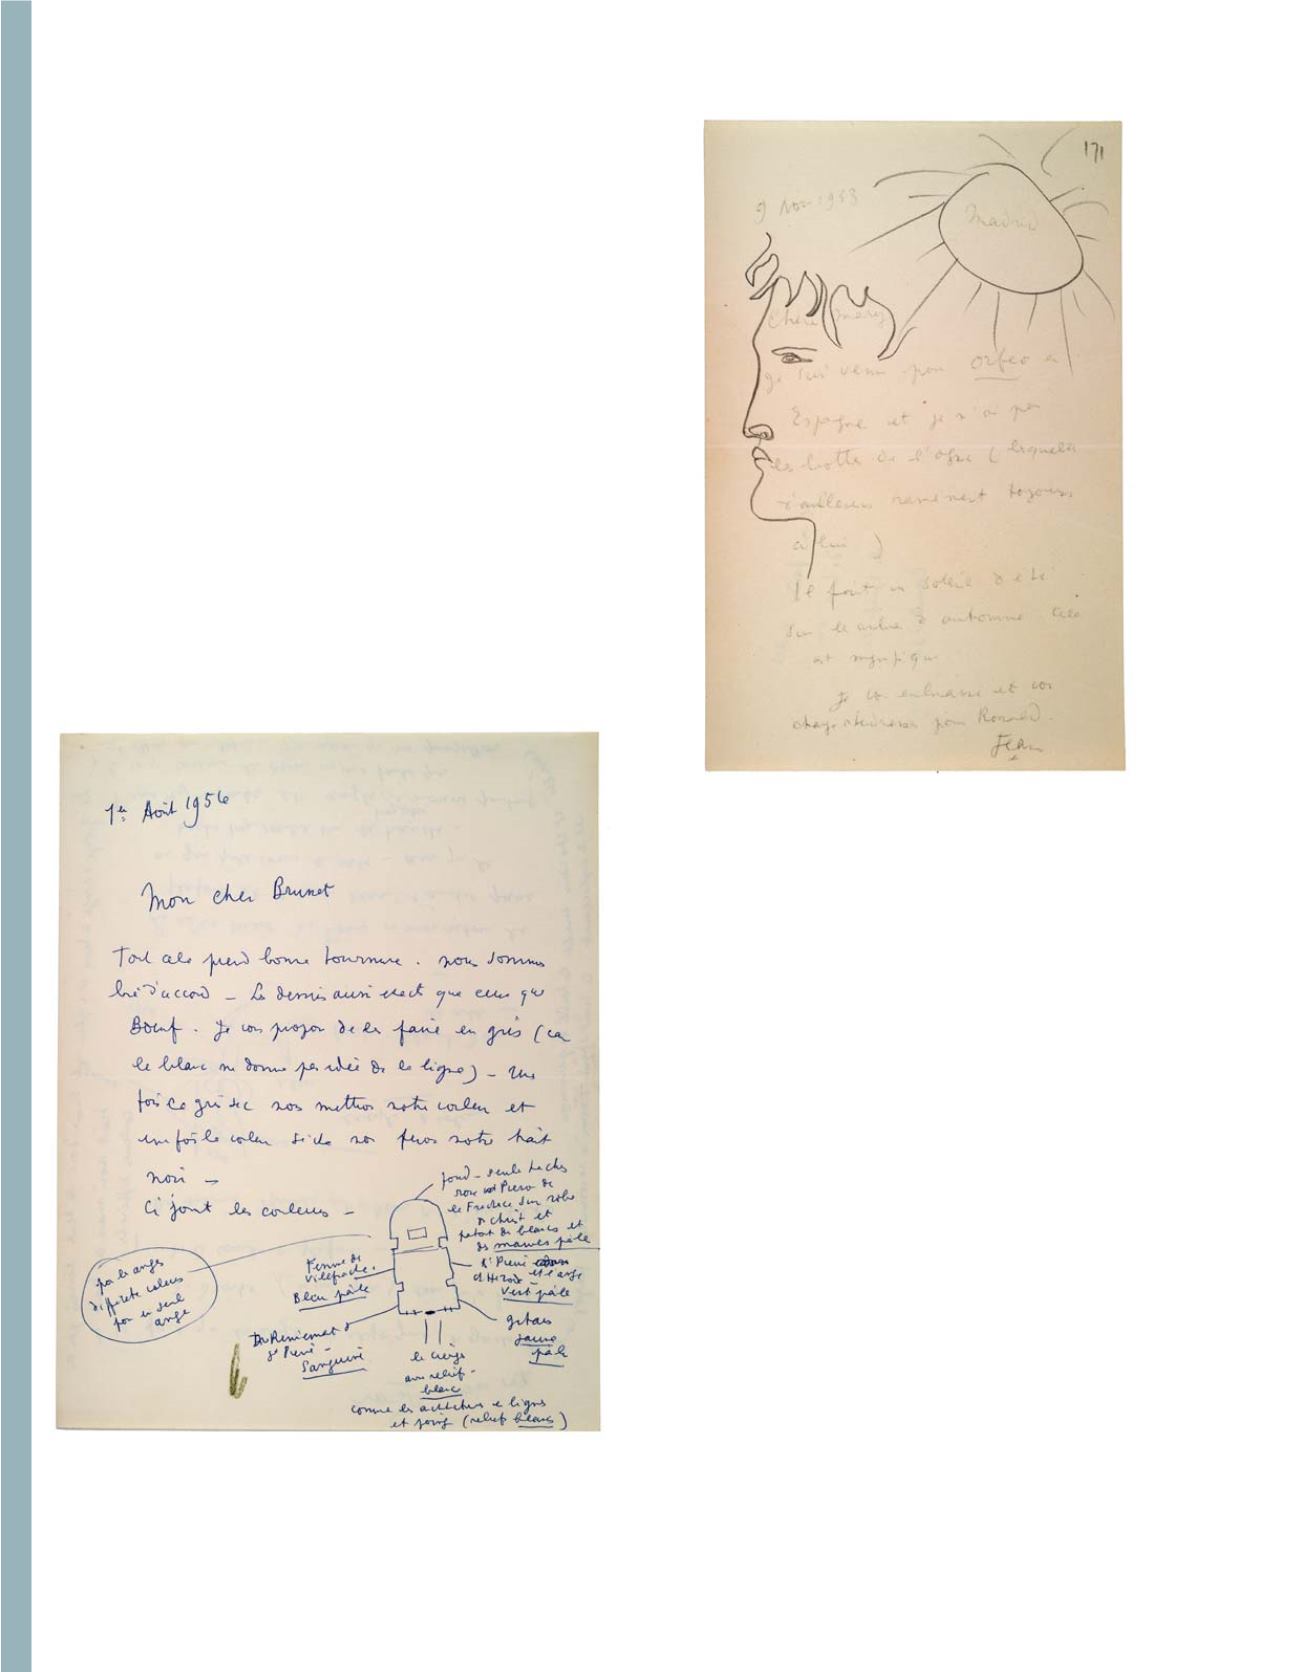 171
9 Nov 1953
Madrid
Chère Mary
Je suis venu pour Orfeo en
Espagne et je n'ai pas
les bottes de l'ogre (lesquelles
d'ailleurs ramènent toujours
à lui)
Il fait un soleil d'été
sur le d'automne. Cela
est magnifique
Je vous embrasse et vous
pour Ronald.
Jean
1er Août 1956
Mon cher Brunet
Tout cela prend bonne tournure. nous sommes
d'accord – Le dessin aussi exact que ceux que
Bœuf. Je vous propose de les faire en gris (car
le blanc ne donne pas idée de la ligne) – Une
fois ce gris sec nous mettrons notre couleur et
une fois la couleur sèche nous ferons notre trait
noir –
Ci joint les couleurs –
fond – seule taches
Piero de
la Francesca sur robe
du Christ et
partout des blancs et
des mauves pâle
Femme de
Villefranche.
Bleu pâle
St Pierre
d'Hérode – et l'ange
Vert pâle
pas les anges
différentes couleurs
pour un seul
ange
Du Reniement de
St Pierre –
Sanguine
gitans
jaune
pâle
le cierge
avec relief –
blanc
comme les et lignes
et (relief blanc)